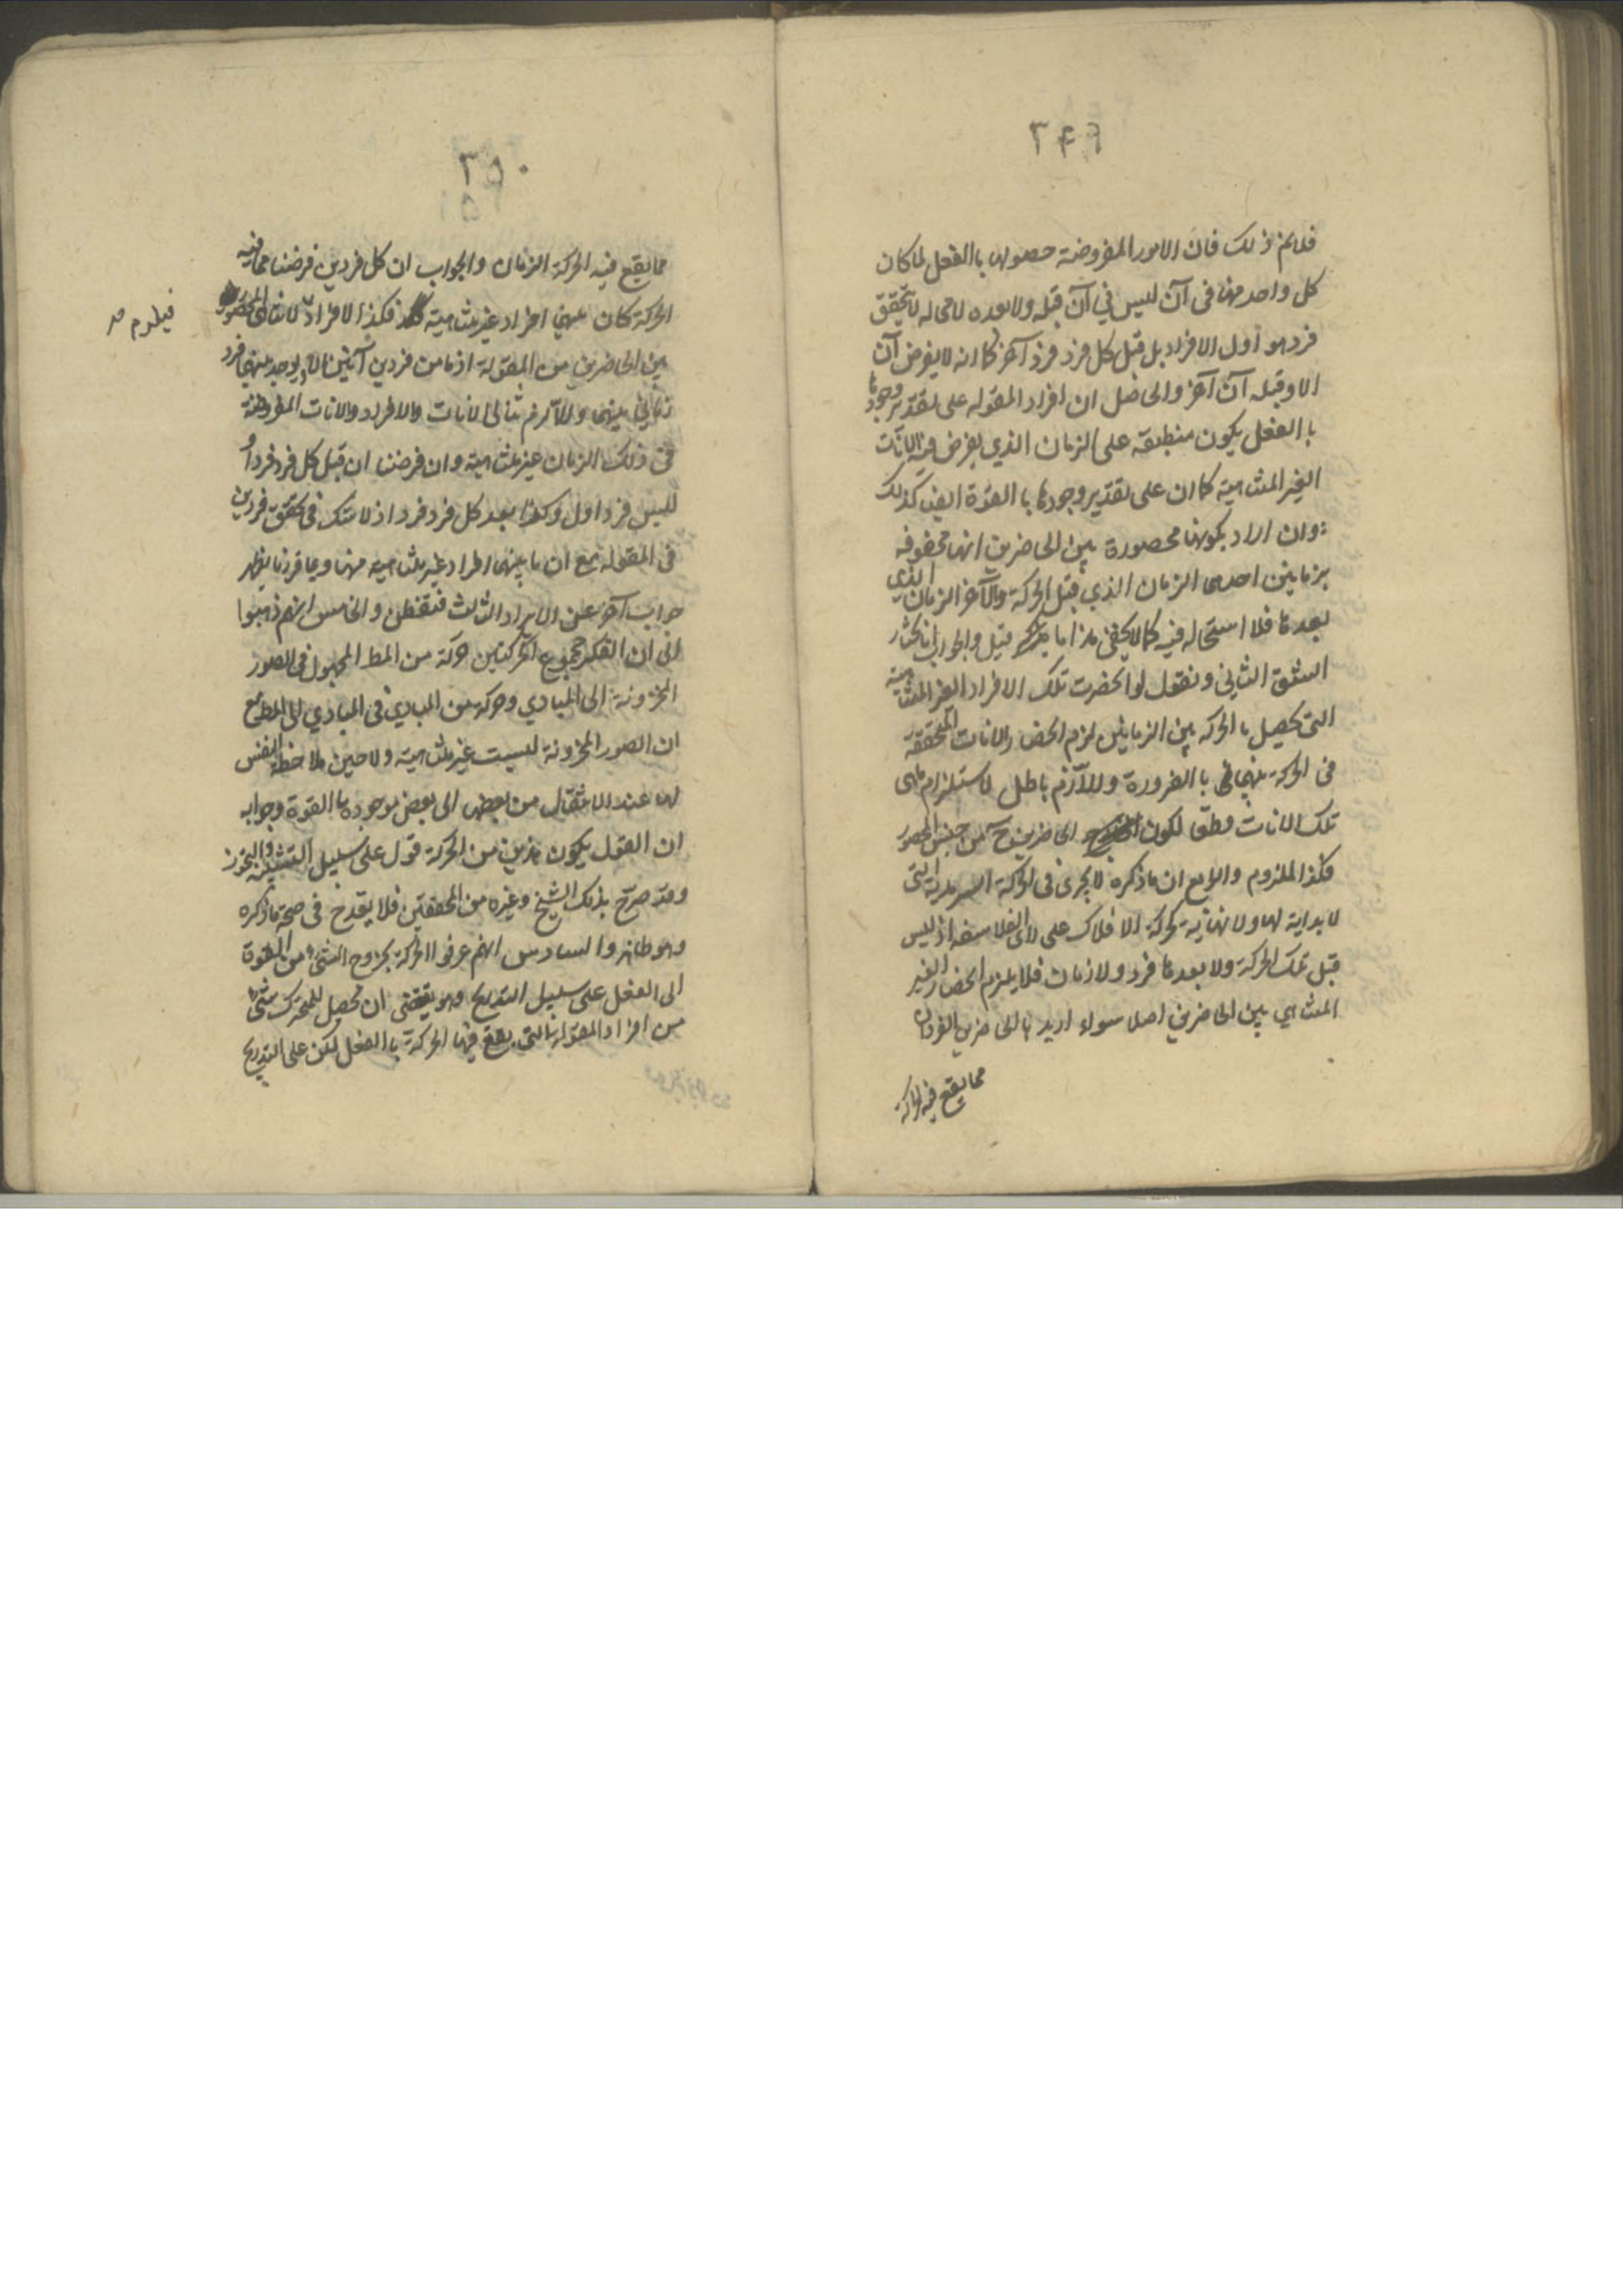 ٢۴۹
فلا يتم ذلك فان الامور المفروضة حصولها باالفعل لما كان
كل واحد منها فى آن ليس في آن قبله ولا بعده لا محاله لا يتحقق
فرد هو أول الافراد بل قبل كل فرد فرد آخر كما انه لا يفرض آن
الا وقبله آن آخر والحاصل ان افراد المقوله على تقدير وجودها
باالفعل يكون منطبقة على الزمان الذي يفرض فيه الآنات
الغير المتناهية كما ان على تقدير وجودها باالقوة ايضا كذلك
وان اراد بكونها محصورة بين الحاضرين انها محفوفه
بزمانين احدهما الزمان الذي قبل الحركة والآخر الزمان الذي
بعدها فلا استحاله فيه كما لا يخفى هذا ما قيل والجواب انا نختار
الشق الثاني ونقول لو انحصرت تلك الافراد الغير المتناهية
التى تحصل باالحركه بين الزمانين لزم انحصار الانات المتحققة
فى الحركة بينهما باالضرورة واللآزم باطل لاستلزام تناهى
تلك الانات مطلقا لكون الحاضرين ح من جنس المحصور
فكذا الملزوم والرابع ان ما ذكره لا يجرى فى الحركة السرمدية التى
لا بداية لها ولا نهاية كحركة الافلاك على رأى الفلاسفه اذ ليس
قبل تلك الحركة ولا بعدها فرد ولا زمان فلا يلزم انحصار الغير
المتناهي بين الحاضرين اصلا سواء اريد باالحاضرين الفردان
مما يقع فيه الحركة
٢٥٠
مما يقع فيه الحركة الزمان والجواب ان كل فردين فرضنا مما فيه
الحركة كان بينهما افراد غير متناهية فكذا الافراد لا تناهى المحصور
بين الحاضرين من المقولة اذ ما من فردين آنيين الا ويوجد بينهما فرد
زماني بينهما واللآزم تنالى الانات والافراد والانات المفروضة
فى ذلك الزمان غير متناهية وان فرضنا ان قبل كل فرد فرداً
ليس فرد اول وكذا بعد كل فرد فرد اذ لا شك فى تحقق فردين
فى المقوله مع ان ما بينهما افراد غير متناهيه منها وبما قررنا يظهر
جواب آخر عن الايراد الثالث فتفطن والخامس انهم ذهبوا
الى ان الفكر مجموع الحركتين حركة من المط المجهول فى الصور
المخزونة الى المبادي وحركة من المبادي فى المبادي الى المط مع
ان الصور المخزونة ليست غير متناهية ولا حين ملاحظة النفس
لها عند الانتقال من بعض الى بعض موجوده باالقوة وجوابه
ان القول بكون هذين من الحركة قول على سبيل التشبيه والتجوز
وقد صرّح بذلك الشيخ وغيره من المحققين فلا يقدح فى صحة ما ذكره
وهو ظاهر والسادس انهم عرفوا الحركة بخروج الشئ من القوة
الى الفعل على سبيل التدريج وهو يقتضى ان يحصل للمتحرك شئ
من افراد المقولة التى يقع فيها الحركة باالفعل لكن على التدريج
فيلزم